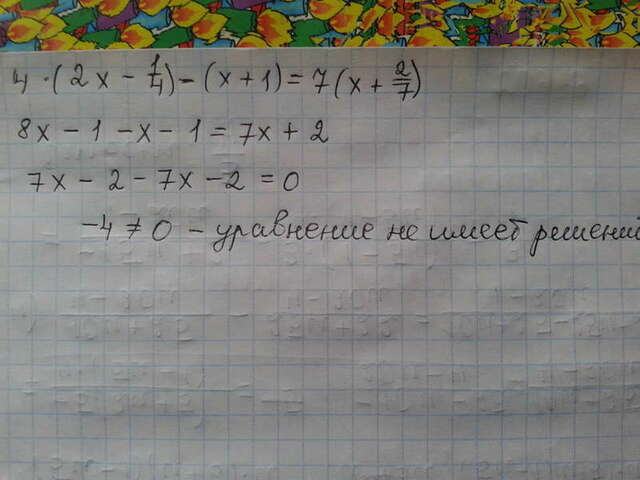 4 · (2x - 1/4) - (x + 1) = 7(x + 2/7)
8x - 1 - x - 1 = 7x + 2
7x - 2 - 7x - 2 = 0
-4 ≠ 0 - уравнение не имеет решений